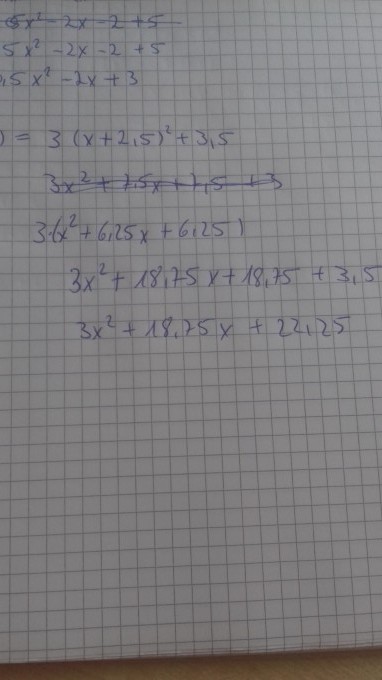 5x² - 2x - 2 + 5
5x² - 2x - 2 + 5
,5x² - 2x + 3
) = 3 (x + 2,5)² + 3,5
3x² + 7,5x + 7,5 + 3
3·(x² + 6,25x + 6,25)
3x² + 18,75x + 18,75 + 3,5
3x² + 18,75x + 22,25